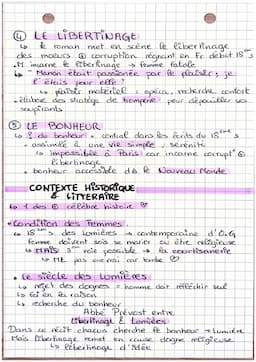 ④ LE LIBERTINAGE
↳ le roman met en scène le libertinage
des mœurs ⊕ corruption régnant en Fr début 18 s
• M incarne le libertinage → femme fatale
↳ "Manon était passionnée par le plaisir ; je
l'étais pour elle"
↳ plaisir matériel : opéra, recherche confort
• élabore des stratège de tromperie pour dépouiller ses
soupirants
⑤ LE BONHEUR
↳ du bonheur : central dans les écrits du 18 ème s
• assimilé à une vie simple / sérénité
↳ impossible à Paris car incarne corrupt° ⊕
libertinage
• bonheur accessible à le Nouveau Monde
CONTEXTE HISTORIQUE
& LITTERAIRE
↳ 1 des ⊕ célèbre histoire
• Condition des Femmes :
↳ 18 ème s des Lumières → contemporaine d'O.G
femme doivent soit se marier ou être religieuse
↳ MAIS 3 ème voie possible → la courtisanerie
↳ ML pas vrmai car tombe
• Le siècle des Lumières
↳ rejet des dogmes = homme doit réfléchir seul
↳ foi en la raison
↳ recherche du bonheur
Abbé Prévost entre
Libertinage & Lumières
Dans ce récit chacun cherche le bonheur → Lumière
Mais libertinage remet en cause dogme religieuse
↳ libertinage d'idée